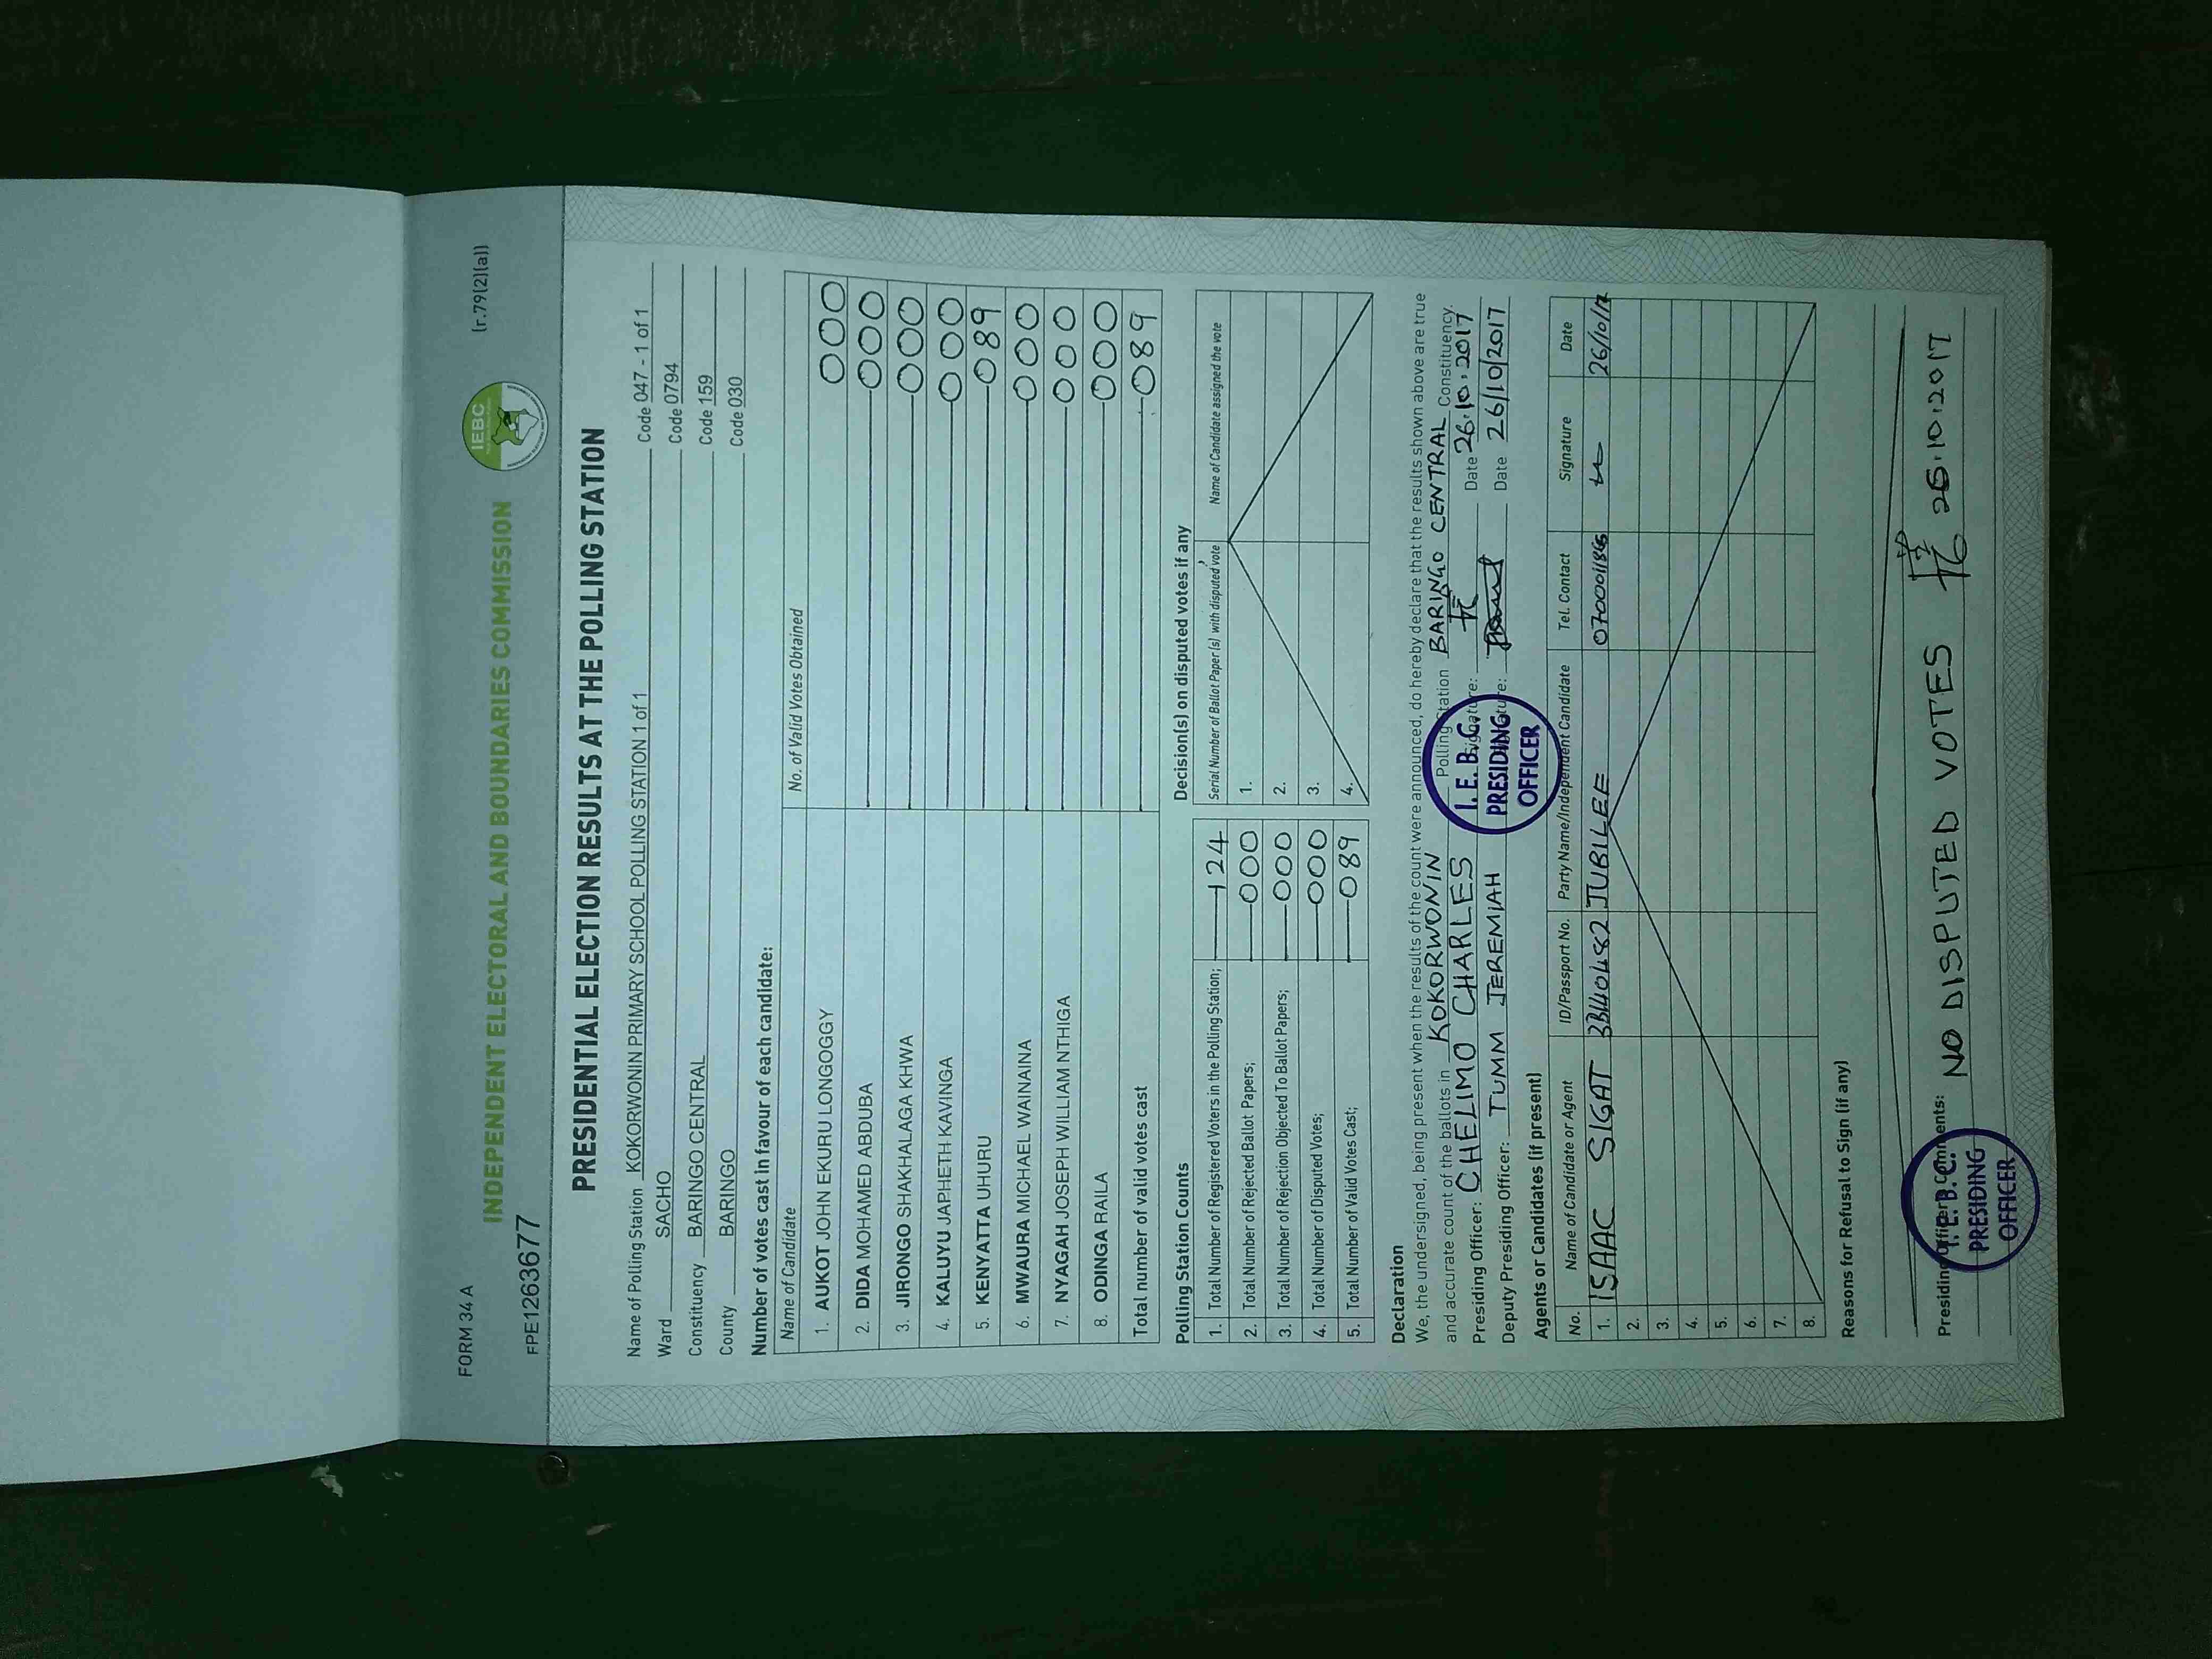 FORM 34 A
(r.79(2)(a))
IEBC
INDEPENDENT ELECTORAL AND BOUNDARIES COMMISSION
FPE1263677
PRESIDENTIAL ELECTION RESULTS AT THE POLLING STATION
Name of Polling Station KOKORWONIN PRIMARY SCHOOL POLLING STATION 1 of 1 Code 047 - 1 of 1
Ward SACHO Code 0794
Constituency BARINGO CENTRAL Code 159
County BARINGO Code 030
Number of votes cast in favour of each candidate:
Name of Candidate No. of Valid Votes Obtained
1. AUKOT JOHN EKURU LONGOGGY 000
2. DIDA MOHAMED ABDUBA 000
3. JIRONGO SHAKHALAGA KHWA 000
4. KALUYU JAPHETH KAVINGA 000
5. KENYATTA UHURU 089
6. MWAURA MICHAEL WAINAINA 000
7. NYAGAH JOSEPH WILLIAM NTHIGA 000
8. ODINGA RAILA 000
Total number of valid votes cast 089
Polling Station Counts
1. Total Number of Registered Voters in the Polling Station; 124
2. Total Number of Rejected Ballot Papers; 000
3. Total Number of Rejection Objected To Ballot Papers; 000
4. Total Number of Disputed Votes; 000
5. Total Number of Valid Votes Cast; 089
Decision(s) on disputed votes if any
Serial Number of Ballot Paper (s) with disputed vote Name of Candidate assigned the vote
1.
2.
3.
4.
Declaration
We, the undersigned, being present when the results of the count were announced, do hereby declare that the results shown above are true
and accurate count of the ballots in KOKORWONIN Polling Station BARINGO CENTRAL Constituency.
Presiding Officer: CHELIMO CHARLES Signature: Date 26.10.2017
Deputy Presiding Officer: TUMM JEREMIAH Signature: Date 26/10/2017
I. E. B. C.
PRESIDING
OFFICER
Agents or Candidates (if present)
No. Name of Candidate or Agent ID/Passport No. Party Name/Independent Candidate Tel. Contact Signature Date
1. ISAAC SIGAT JUBILEE 26/10/17
2.
3.
4.
5.
6.
7.
8.
Reasons for Refusal to Sign (if any)
Presiding Officer's Comments: NO DISPUTED VOTES 26.10.2017
I. E. B. C.
PRESIDING
OFFICER